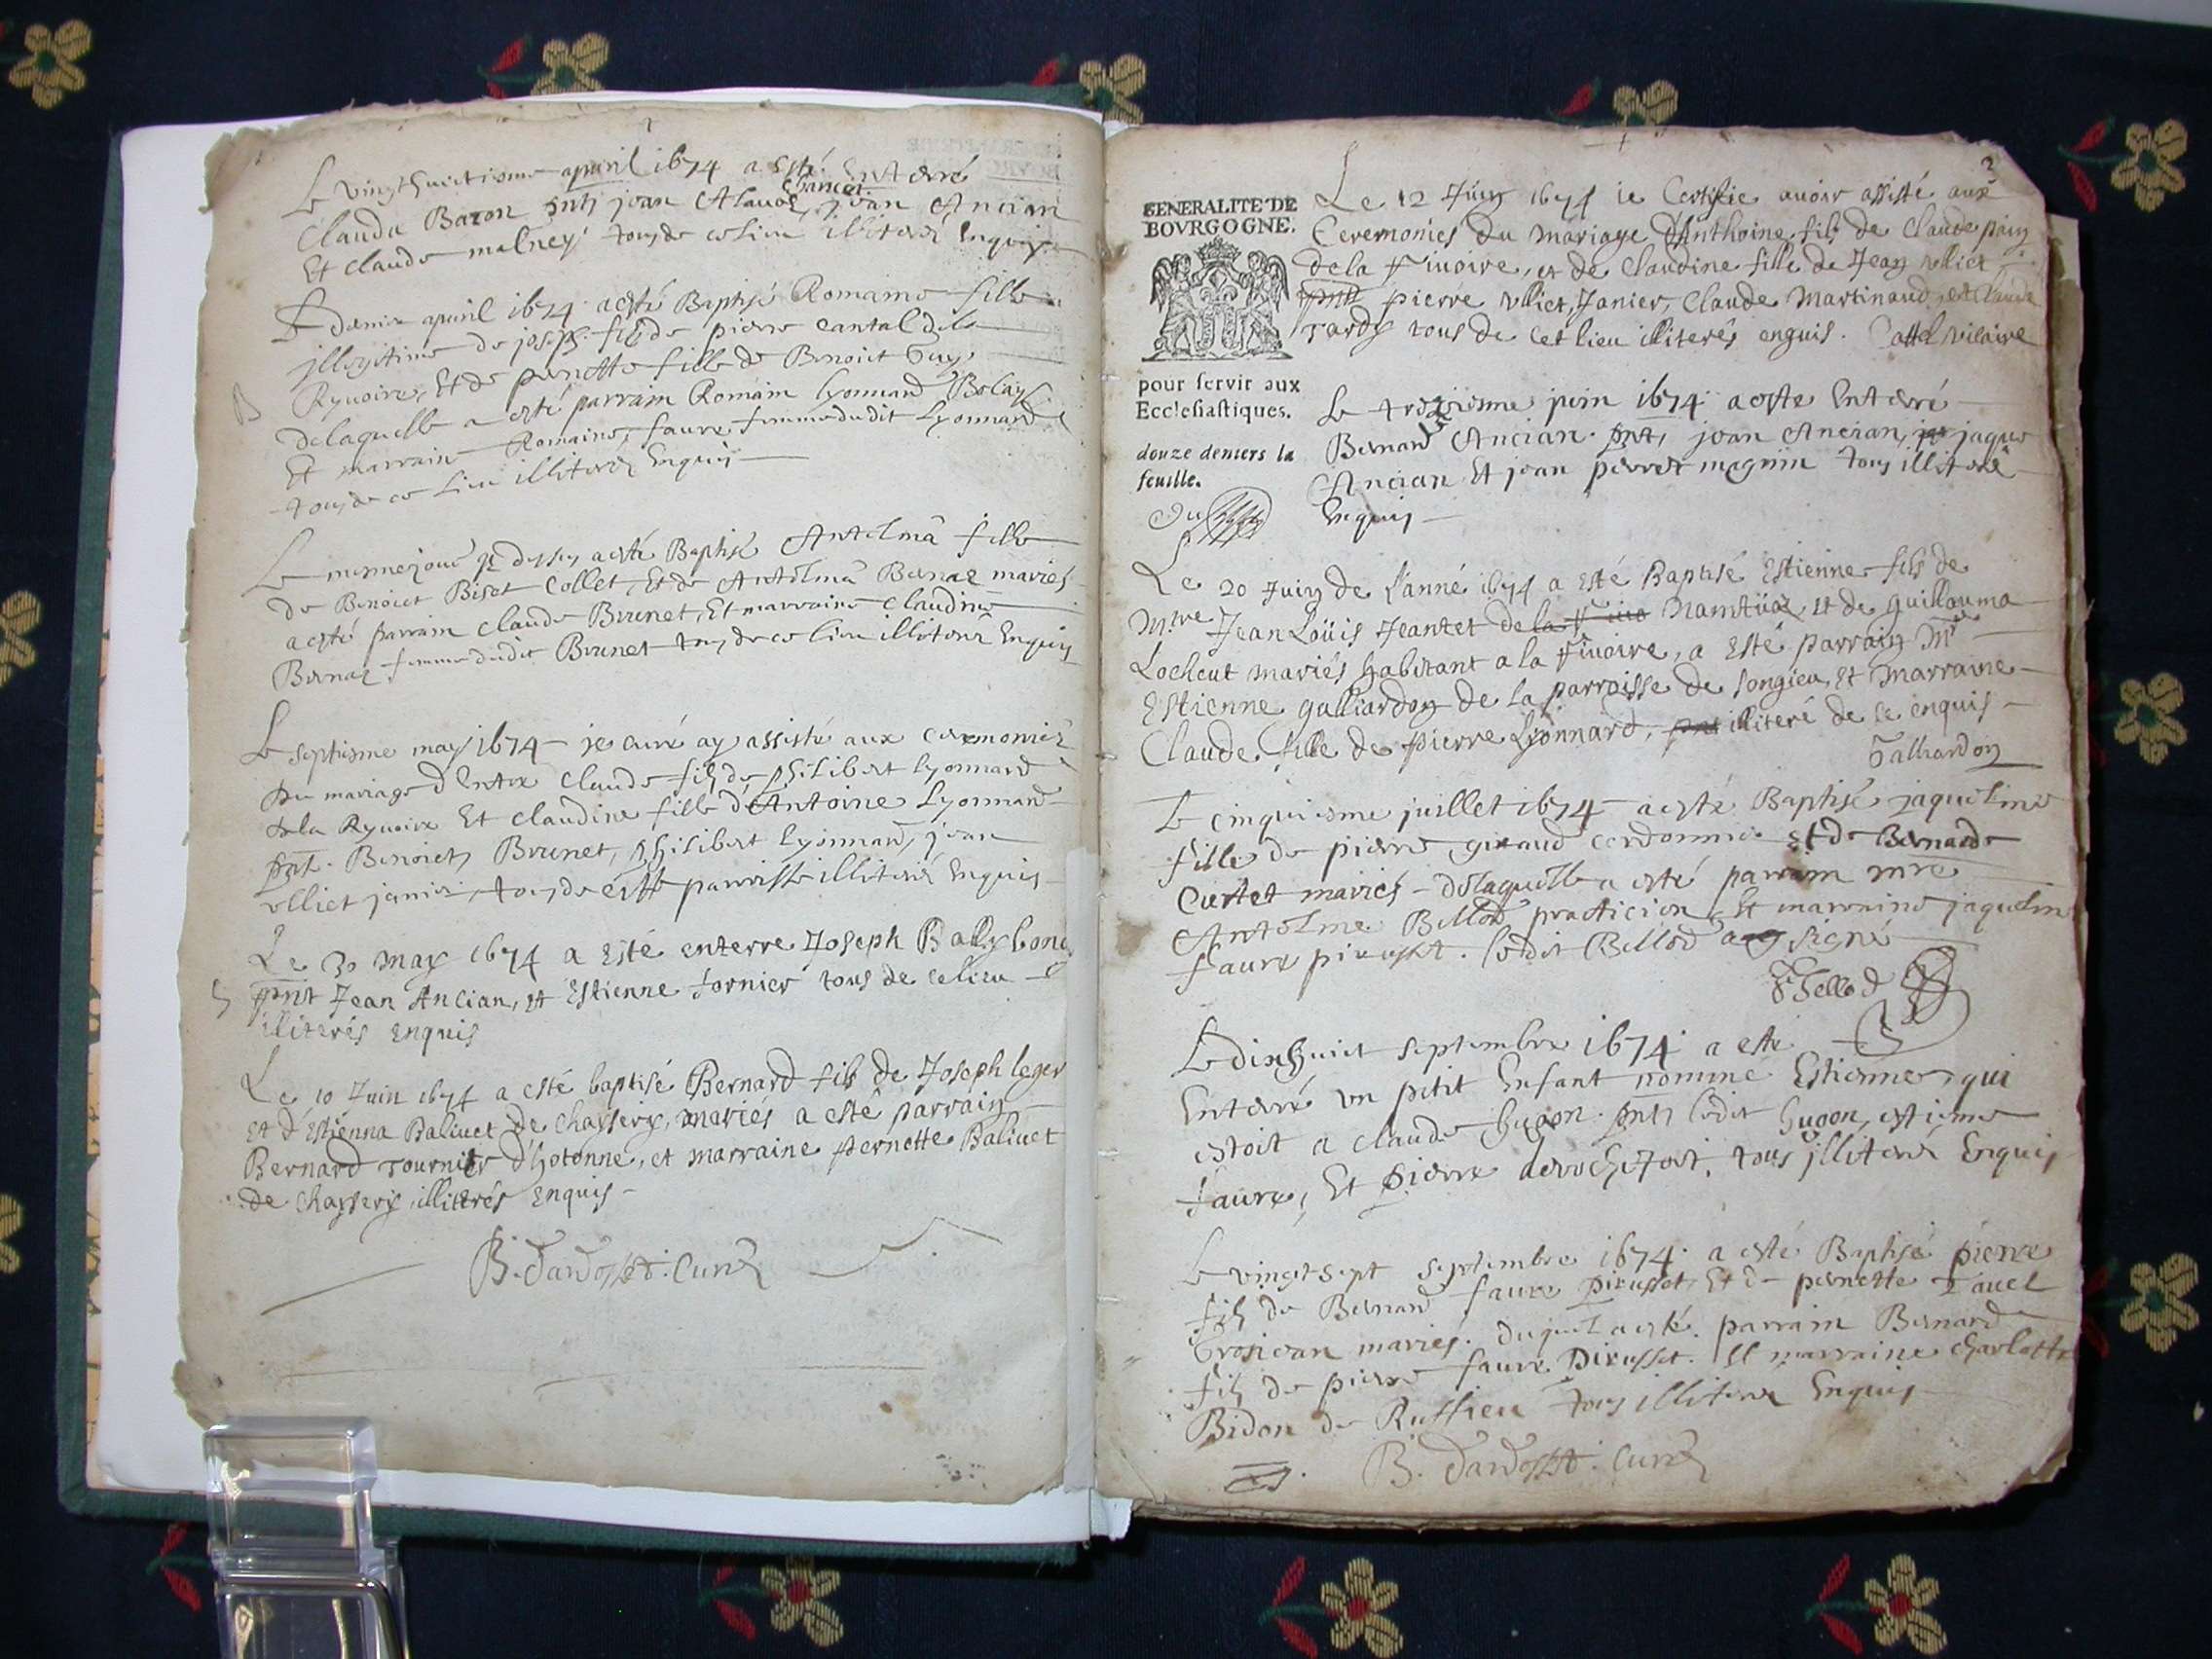 Le vingthuictiesme apvril 1674 a esté Enterré
chancet.
Claude Baron pnts jean Claude, jean Ancian
Et claude malney tous de ce lieu illiterés Enquis
Le dernier apvril 1674 a esté Baptisé Romaine fille
jllegitime de joseph fils de pierre cantal de la
Ryvoire, Et de pernette fille de Benoict Guy
B
de laquelle a esté parrain Romain lyonnard
Et marraine Romaine faure femme dudit Lyonnard
tous de ce lieu illiterés Enquis
Le mesme jour que dessus a esté Baptisé Antelma fille
de Benoict Biset Collet, Et de Antelma Bernaz mariés
a esté parrain claude Brunet, Et marraine claudine
Bernaz femme dudit Brunet tous de ce lieu illiterés Enquis
Le septiesme may 1674 je curé ay assisté aux ceremonies
du mariage d'Entre Claude fils de philibert lyonnard
de la Ryvoire Et claudine fille d'Antoine Lyonnard
pnt. Benoict Brunet, philibert lyonnard, jean
vlliet janier, tous de ceste parroisse illiterés Enquis
Le 30 may 1674 a Esté enterre Joseph Ballybond
pnt Jean Ancian, et Estienne fornier tous de ce lieu
illiterés enquis
Le 10 Juin 1674 a esté baptisé Bernard fils de Joseph leger
et d'Estienna Balivet de chayserie, mariés a esté parrain
Bernard tournier d'hotonne, et marraine pernette Balivet
de chayserie illiterés enquis
B. Dardosset. Curé
2
GENERALITE DE
BOVRGOGNE.
pour servir aux
Ecclesiastiques.
douze deniers la
feuille.
Le 12 Juin 1674 ie Certifie avoir assisté aux
Ceremonies du mariage d'Anthoine fils de claude pain
de la Fivoire, et de claudine fille de Jean vlliet
pnt pierre vlliet, Janier, claude martinaud, et claude
tardy tous de cet lieu illiterés enquis. Cattel vicaire
Le treziesme juin 1674 a esté Enterré
Bernard Ancian. pnts jean Ancian, jaque
Ancian Et jean perret magnin tous illiterés
Enquis
Le 20 Juin de l'anné 1674 a Esté Baptisé Estienne fils de
Mtre Jean Loüis Jeantet de la Nantüaz et de guillauma
Locheut mariés habitant a la Fivoire, a Esté parrain Mr
Estienne galliardon de la parroisse de songieu, Et marraine
Claude fille de Pierre Lyonnard, pnt illiteré de ce enquis
Galliardon
Le cinquiesme juillet 1674 a esté Baptisé jaqueline
fille de pierre giraud cordonnier et de Bernarde
Curtet mariés de laquelle a esté parrain mre
Antelme Bellod practicien Et marraine jaqueline
faure pirusset. ledit Bellod a signé
Bellod
Le dixhuict septembre 1674 a esté
Enterré un petit Enfant nommé Estienne qui
estoit a claude hugon. pnts ledit hugon, estienne
faure, Et pierre tous jlliterés Enquis
Le vingt sept septembre 1674. a esté Baptisé pierre
fils de Bernard faure Pirusset, Et de pernette Tavel
Grosjean mariés. duquel a esté parrain Bernard
fils de pierre faure Pirusset. Et marraine charlotte
Bidon de Ruffieu tous illiterés Enquis
B. Dardosset. Curé